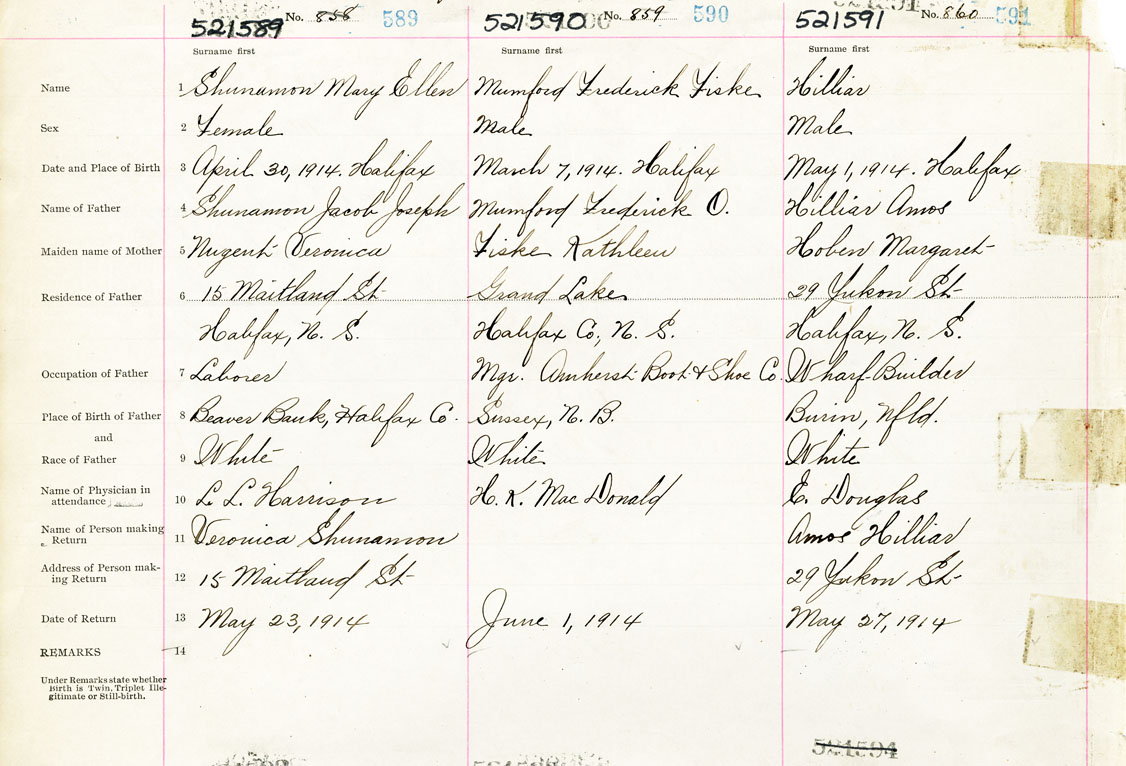 521589 No. 858 589 521590 No. 859 590 521591 No. 860 591
Surname first Surname first Surname first
Name 1 Shunamon Mary Ellen Mumford Frederick Fiske Hilliar
Sex 2 Female Male Male
Date and Place of Birth 3 April 30, 1914. Halifax March 7, 1914. Halifax May 1, 1914. Halifax
Name of Father 4 Shunamon Jacob Joseph Mumford Frederick O. Hilliar Amos
Maiden name of Mother 5 Nugent Veronica Fiske Kathleen Hoben Margaret
Residence of Father 6 15 Maitland St Grand Lake 29 Yukon St
Halifax, N. S. Halifax Co., N. S. Halifax, N. S.
Occupation of Father 7 Laborer Mgr. Amherst Boot & Shoe Co. Wharf-Builder
Place of Birth of Father 8 Beaver Bank, Halifax Co. Sussex, N. B. Burin, Nfld.
and
Race of Father 9 White White White
Name of Physician in
attendance 10 L. L. Harrison H. K. MacDonald E. Douglas
Name of Person making
Return 11 Veronica Shunamon Amos Hilliar
Address of Person mak-
ing Return 12 15 Maitland St 29 Yukon St
Date of Return 13 May 23, 1914 June 1, 1914 May 27, 1914
REMARKS 14
Under Remarks state whether
Birth is Twin, Triplet Ille-
gitimate or Still-birth.
521594